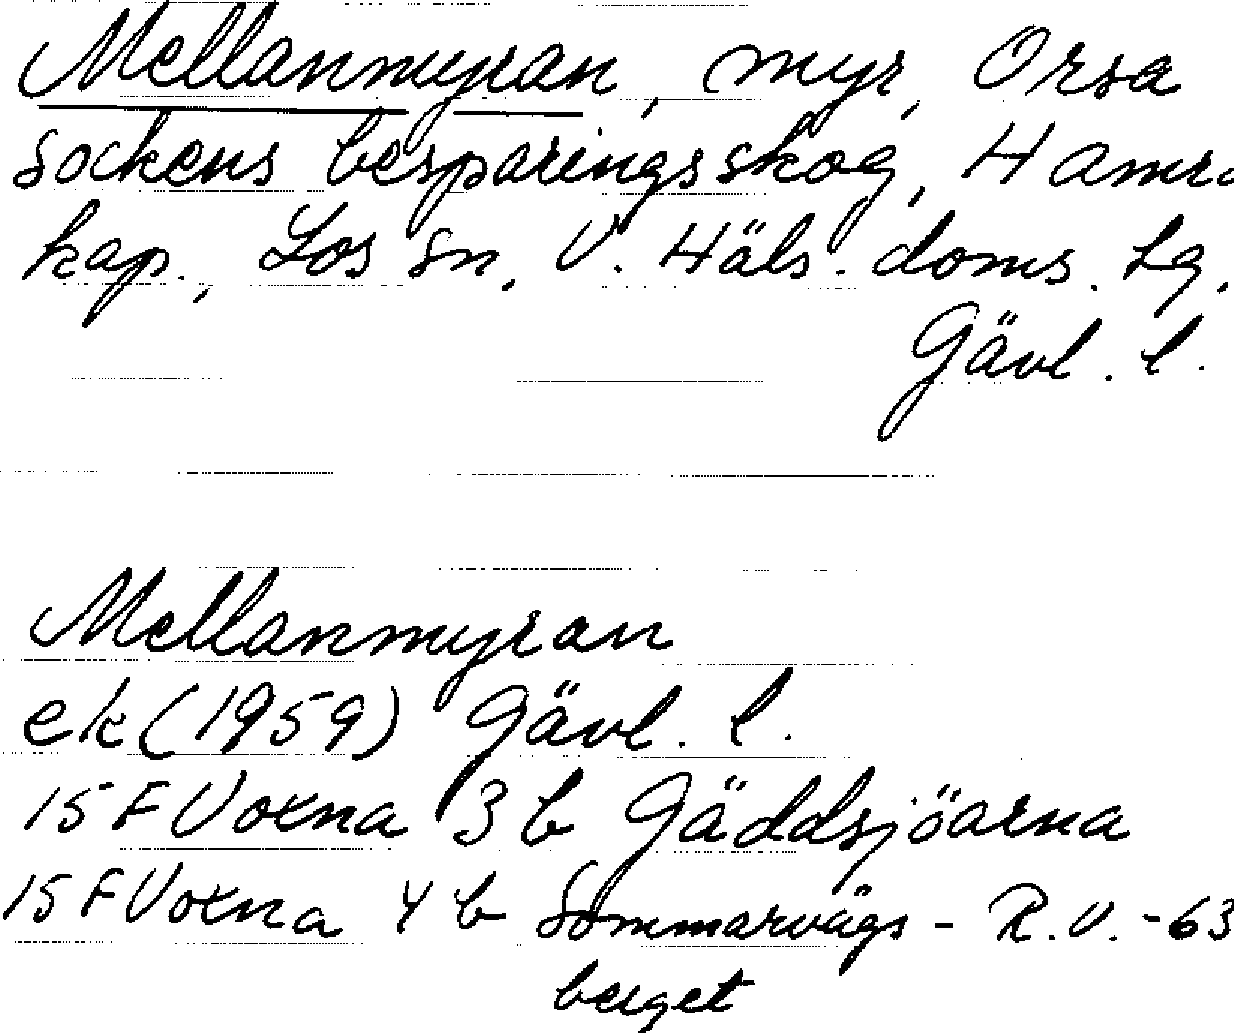 Mellanmyran, myr, Orsa
sockens besparingsskog, Hamra
kap., Los sn, V. Häls. doms. lg,
Gävl. l.
Mellanmyran
ek (1959) Gävl. l.
15 F Voxna 3 b Gäddsjöarna
15 F Voxna 4 b Sommarvägs - R.V. -63
berget